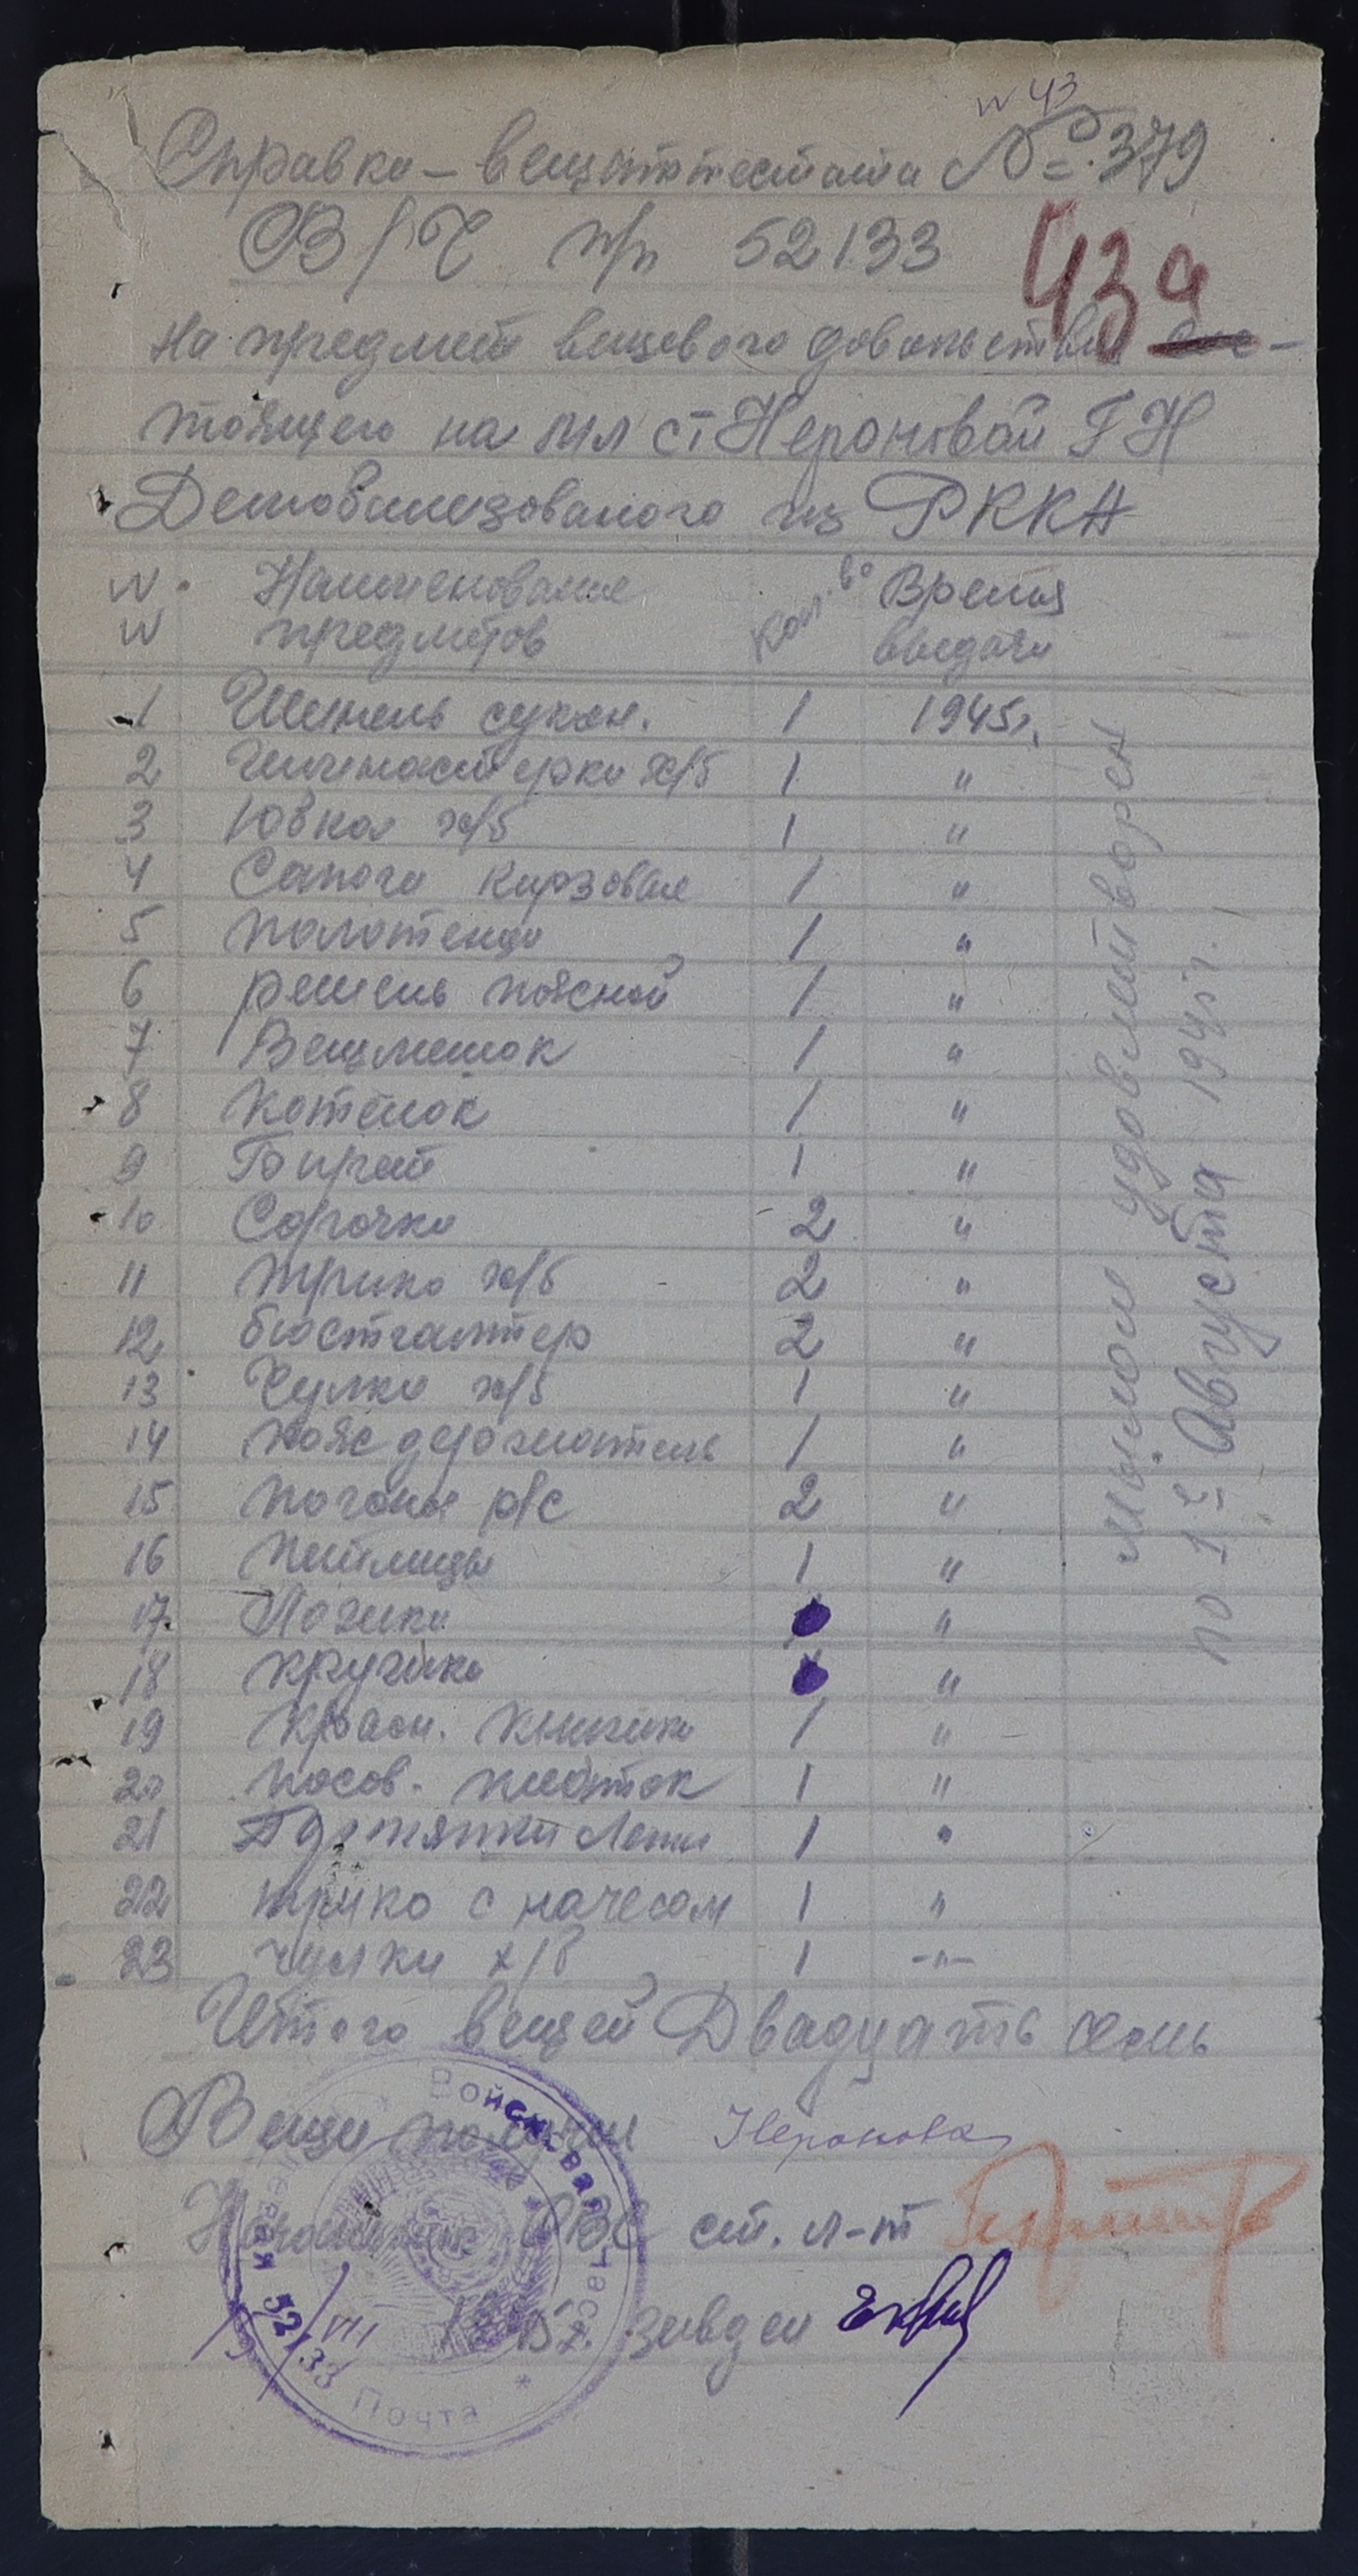 N 43
Справка - вещаттестата № 379
В/Ч п/п 52133
43а
На предмет вещевого довольствия сос-
тоящего на мл с-т Нероновой Г Н
Демобилизованого из РККА
N N Наименование предметов Кол. во Время выдачи
1 Шинель сукон. 1 1945г.
2 Гимнастерка х/б 1 "
3 Юбка х/б 1 "
4 Сапоги кирзовые 1 "
5 Полотенце 1 "
6 ремень поясной 1 "
7 Вещмешок 1 "
8 Котелок 1 "
9 1 "
10 Сорочка 2 "
11 трико х/б 2 "
12 бюстгалтер 2 "
13 Чулки х/б 1 "
14 пояс держатель 1 "
15 погоны р/с 2 "
16 петлицы 1 "
17 Ложка "
18 кружка "
19 Красн. книжка 1 "
20 носов. платок 1 "
21 1 "
22 трико с начесом 1 "
23 чулки х/б 1 -"-
мылом удовлетворен
по 1е Августа 1945 г.
Итого вещей Двадцать семь
Вещи получил Неронова
Начальник ОВС ст. л-т
VIII 1945г. завдел
Войсковая часть
Полевая Почта
52133